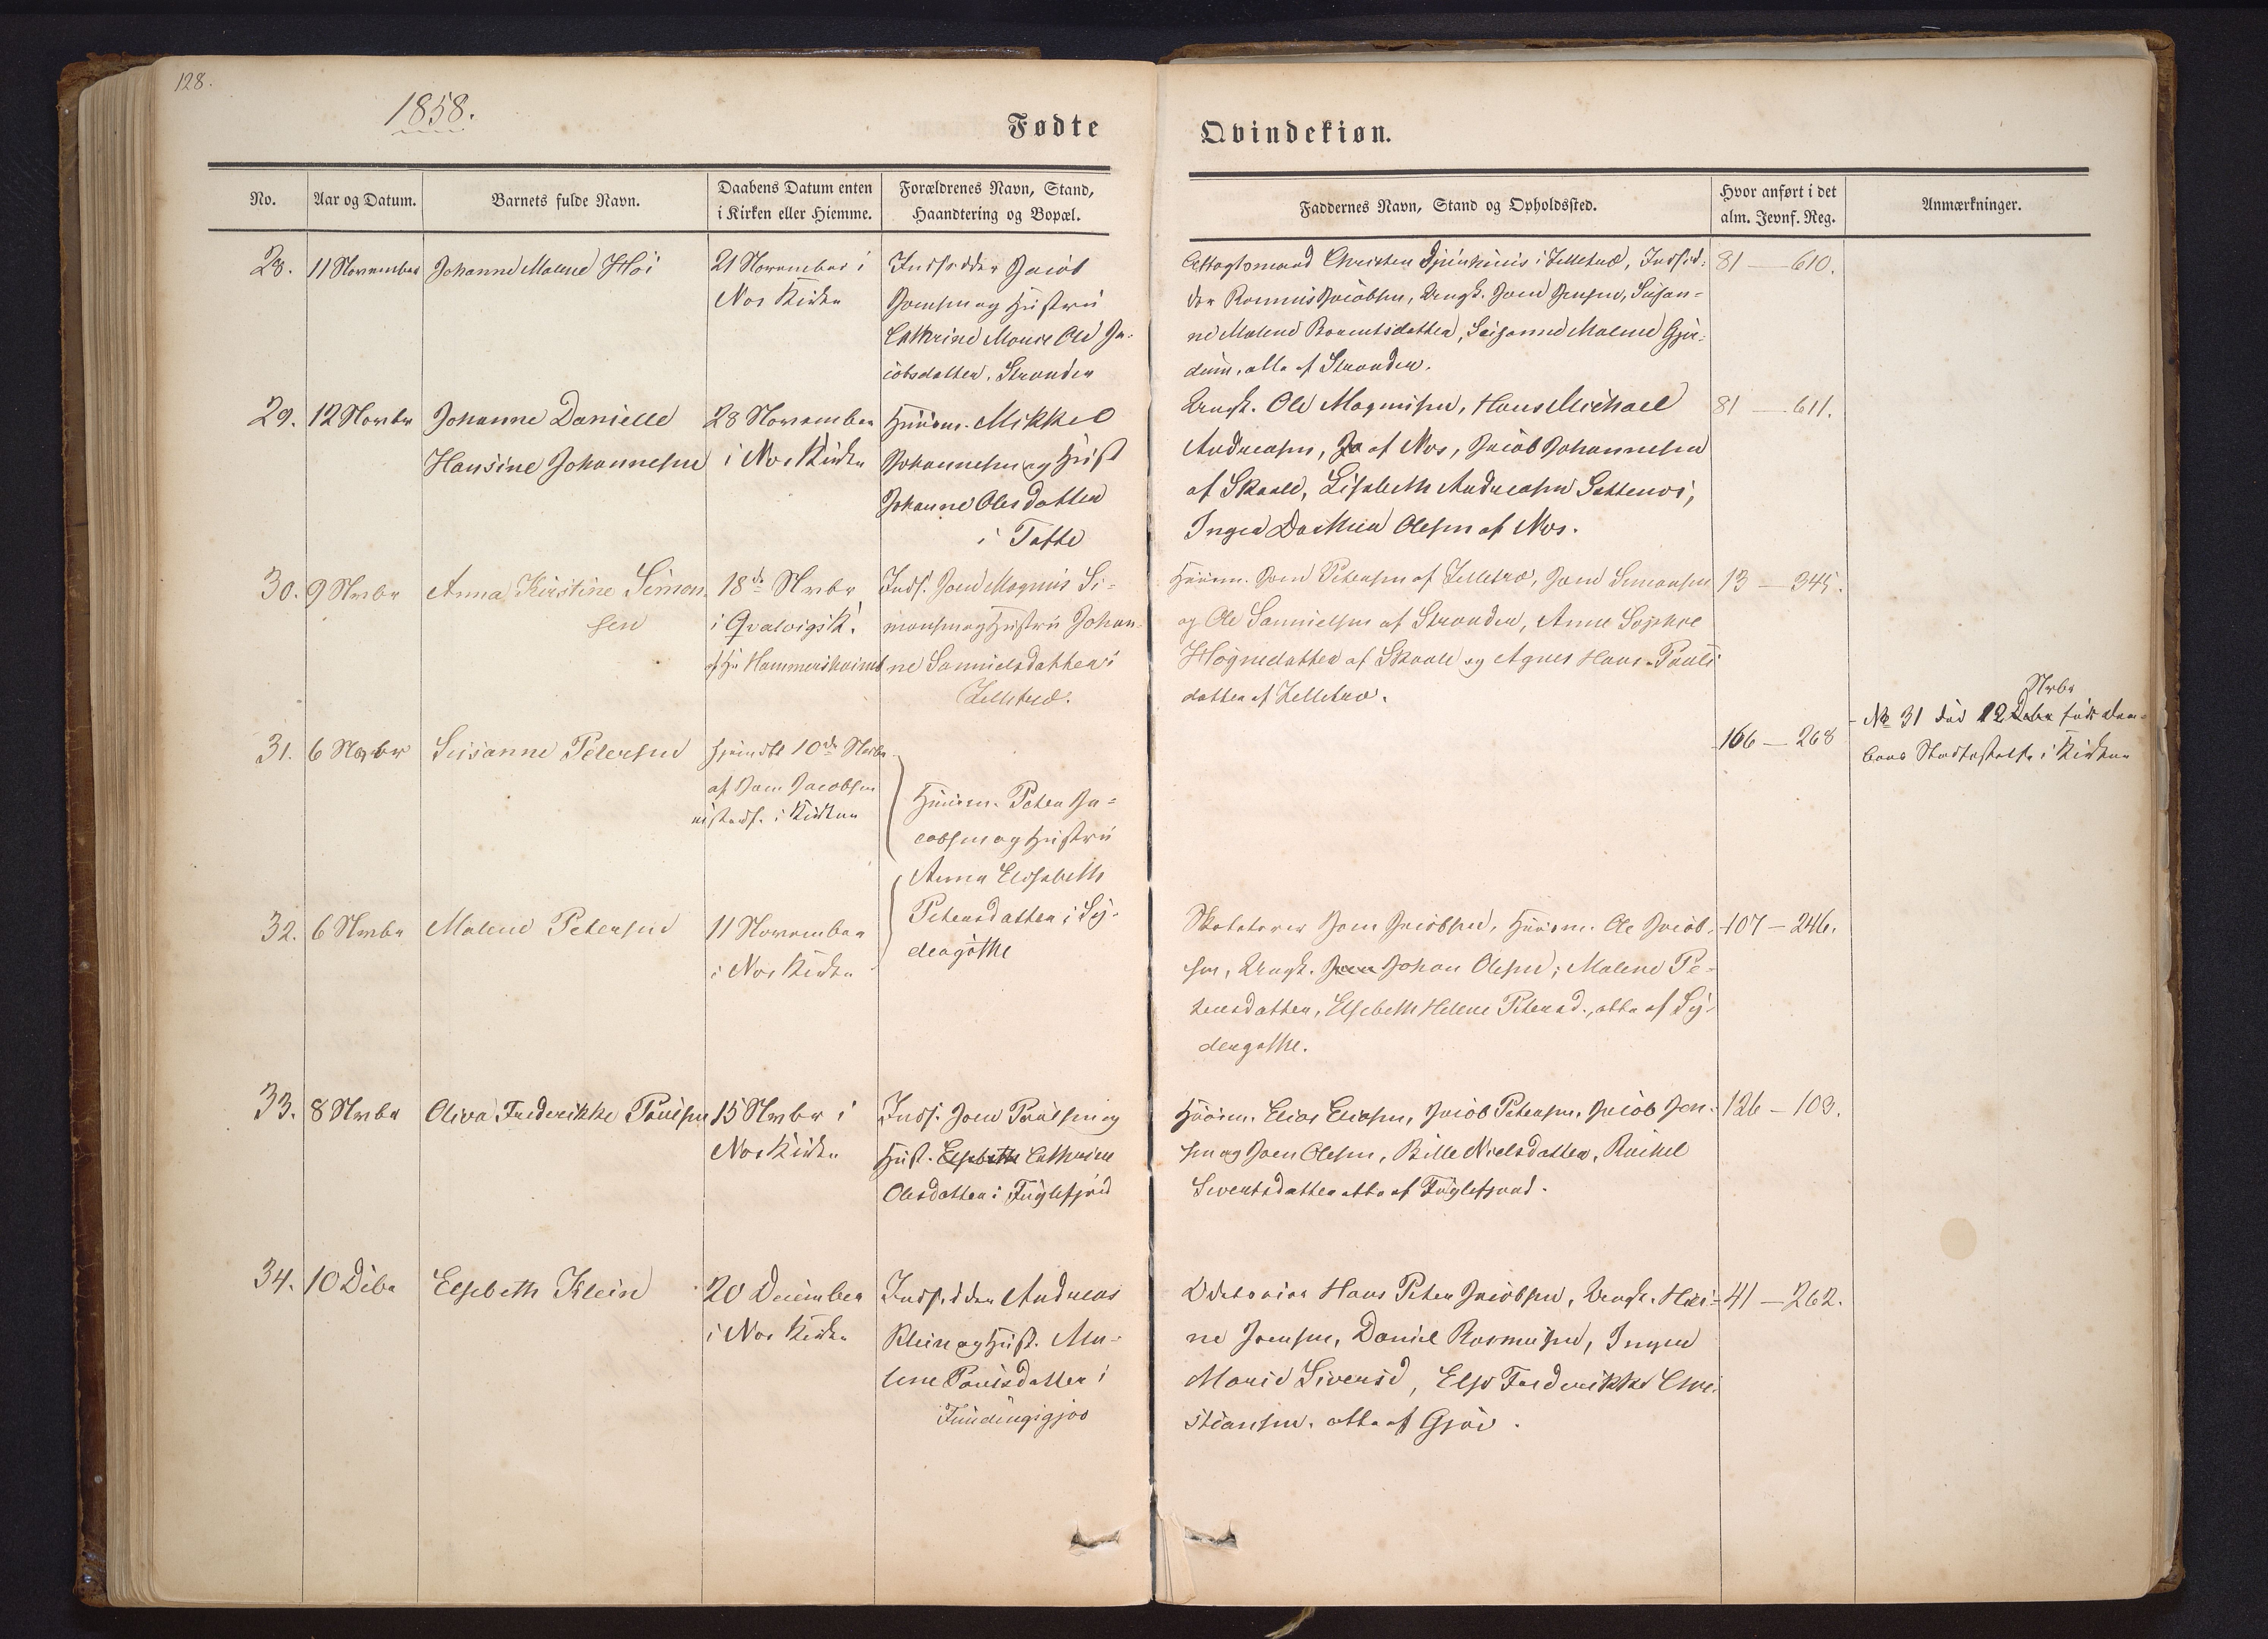 128.
1858.
Fødte
Qvindekiøn.
No.
Aar og Datum.
Barnets fulde Navn.
Daabens Datum enten
i Kirken eller Hiemme.
Forældrenes Navn, Stand,
Haandtering og Bopæl.
Faddernes Navn, Stand og Opholdssted.
Hvor anført i det
alm. Jevnf. Reg.
Anmærkninger.
28.
11 November
Johanne Malene Høi
21 November i
Nes Kirke
Indsidder Jacob
Joensen og Hustru
Cathrine Marie Ja-
cobsdatter. Stranden
Christen i Zelletræ, Indsid-
der Jacobsen, Ungk. Joen Jensen, Susan-
ne Malene datter, Susanne Malene
alle af Stranden.
81 — 610.
29.
12 Novbr
Johanne Danielle
Hansine Johannesen
28 November
i Nes Kirke
Huusm. Mikkel
Johannesen og Hust
Johanne Olesdatter
i Tofte
Ungk. Ole Magnusen, Hans Michael
Andreasen, af Nes, Jacob Johannesen
af Skaale, Elisabeth Andreasen
Inger Dorthea Olesen af Nes.
81 — 611.
30.
9 Novbr
Anna Kirstine Simon-
sen
18de Novbr
i Qvalvigs K.
af Hr Hammershaimb
Inds. Joen Magnus Si-
monsen og Hustru Johan-
ne Samuelsdatter i
Zelletræ.
Huusm. Joen Petersen af Zelletræ, Joen Simonsen
og Ole Samuelsen af Stranden, Anne Sophie
Høgnedatter af Skaale og Agnes Hans-Pauls
datter af Zelletræ.
13 — 345.
31.
6 Novbr
Susanne Petersen
hjemdbt 10de Novbr
af Joen Jacobsen
i Kirken
Huusm. Peter Ja-
cobsen og Hustru
Anna Elisabeth
Petersdatter i Sy-
dergøthe
166 — 268
Novbr
No 31 død 12 før Daa-
bens Stadfæstelse i Kirken
32.
6 Novbr
Malene Petersen
11 November
i Nes Kirke
Joen Jacobsen, Huusm. Ole Jacob-
sen, Ungk. Johan Olesen, Malene Pe-
tersdatter, Elsebeth Helene Petersd., alle af Sy-
dergøthe.
107 — 246.
33.
8 Novbr
Oliva Frederikke Poulsen
15 Novbr i
Nes Kirke
Inds. Joen Poulsen og
Hust. Elsebeth Cathrine
Olesdatter i Fuglefjord
Huusm. Elias Eliasen, Jacob Petersen, Jacob Jen-
sen og Joen Olesen, Bille Nielsdatter, Rachel
Sivertsdatter alle af Fuglefjord.
126 — 103.
34.
10 Debr
Elsebeth Klein
20 December
i Nes Kirke
Indsidder Andreas
Klein og Hust. Ma-
lene Poulsdatter i
Funding
Hans Peter Jacobsen, Ungk.
Joensen, Daniel Rasmusen, Inger
Marie Siversd, Else Frederikke Chri-
stiansen. alle af Gjov.
41 — 262.